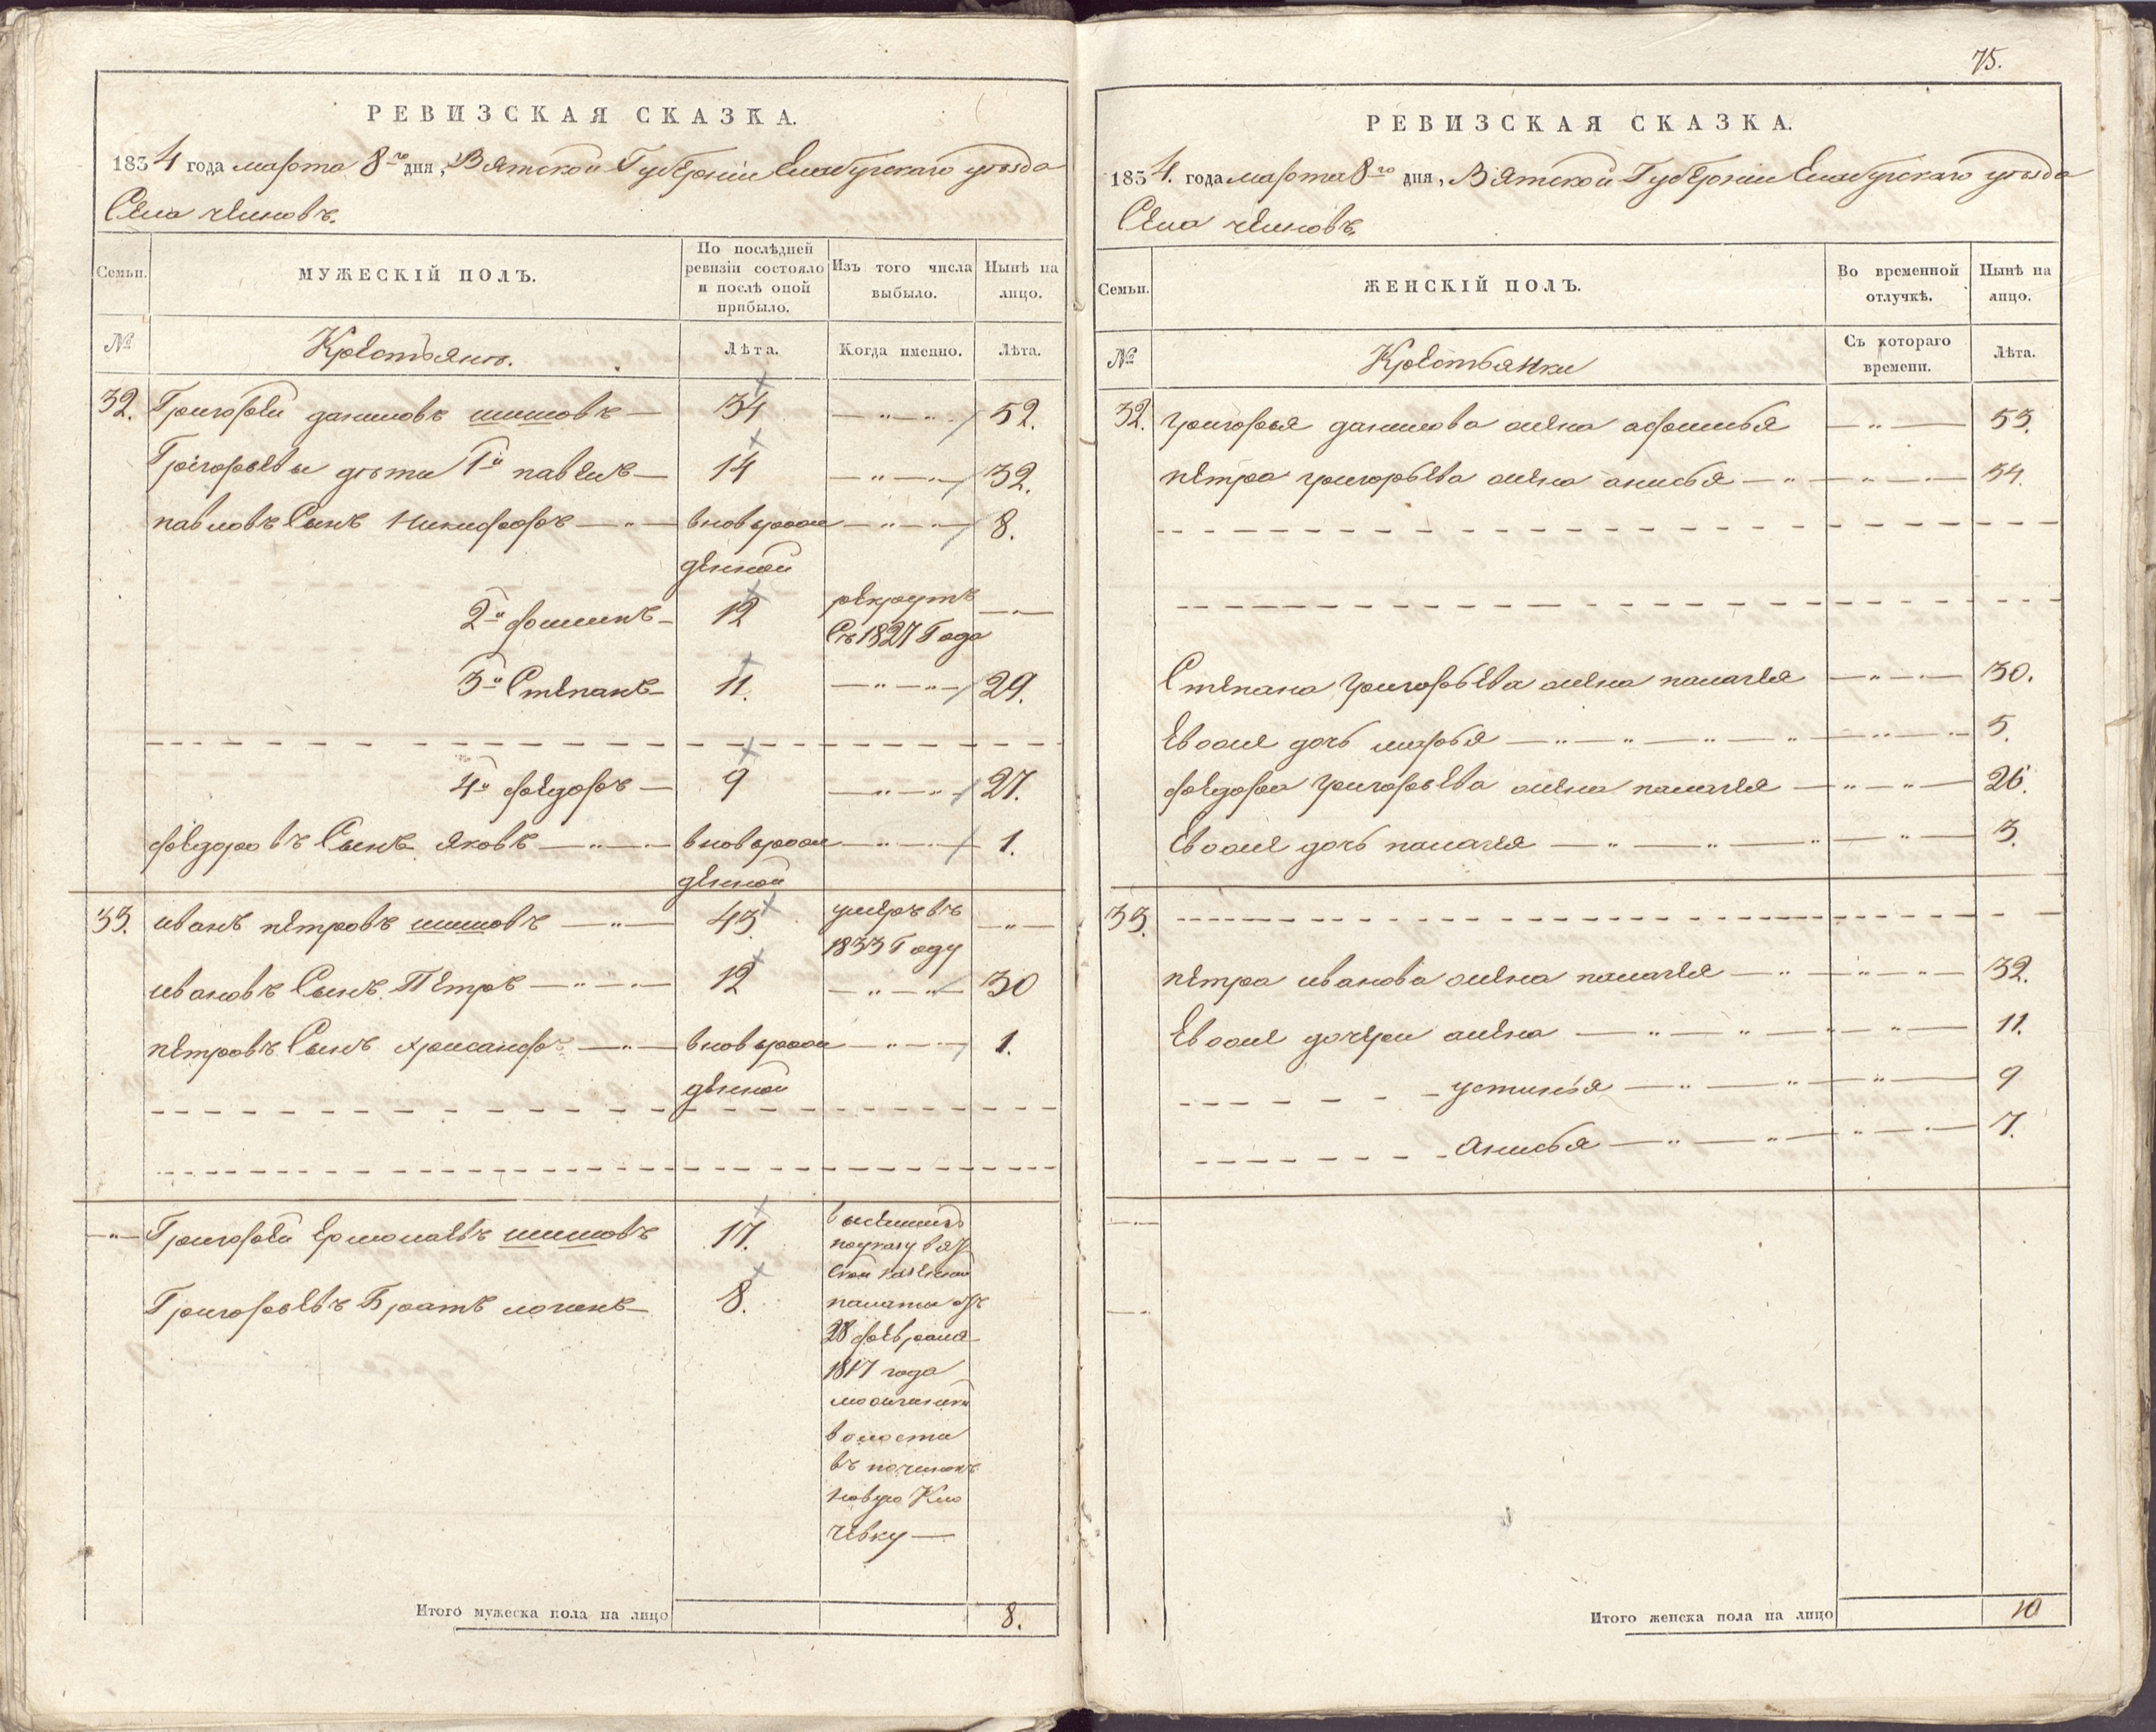 РЕВИЗСКАЯ СКАЗКА.
1834 года марта 8го дня, Вятской Губернiи Елабугскаго уѣзда
Села челновъ.
Семьи.
МУЖЕСКIЙ ПОЛЪ.
По послѣдней ревизiи состояло и послѣ оной прибыло.
Изъ того числа выбыло.
Нынѣ на лицо.
№
Крестьянъ.
Лѣта.
Когда именно.
Лѣта.
32. Григорей даниловъ шишовъ — 34 — „ — „ 52.
Григорьевы дѣти 1й павелъ — 14 — „ — „ 32.
павловъ Сынъ Никифоръ — „ — вновьрож — „ — „ 8.
денной
2й филипъ — 12 рекрутъ — „ —
Съ 1827 Года
3й Степанъ — 11. — „ — „ 29.
4й федоръ — 9 — „ — „ 27.
федоровъ Сынъ яковъ — „ — вновьрож — „ — 1.
денной
33. иванъ петровъ шишовъ — „ — 43. умеръ въ — „ —
1833 Году
ивановъ Сынъ Петръ — „ — 12 — „ — „ 30
петровъ Сынъ хрисанфъ — „ — вновьрож — „ — 1.
денной
— „ — Григорей ермолаевъ шишовъ 17. высланы
поуказу вят
Григорьевъ Братъ логинъ — 8.
ской казенной
палаты отъ
28 февраля
1817 года
можгинской
волости
въ починокъ
новую Клю
чевку —
Итого мужеска пола на лицо 8.
75.
РЕВИЗСКАЯ СКАЗКА.
1834. года марта 8го дня, Вятской Губернiи Елабугскаго уѣзда
Села челновъ.
Семьи.
ЖЕНСКIЙ ПОЛЪ.
Во временной отлучкѣ.
Нынѣ на лицо.
№
Крестьянки
Съ котораго времени.
Лѣта.
32. григорья данилова жена афимья — „ — 53.
петра григорьева жена анисья — „ — „ — 34.
Степана григорьева жена палагея — „ — 30.
Евоже дочь марья — „ — „ — „ — 5.
федора григорьева жена палагея — „ — „ — 26.
Евоже дочь палагея — „ — „ — „ — 3.
33.
петра иванова жена палагея — „ — „ — „ — 32.
Евоже дочери алена — „ — „ — „ — 11.
устинья — „ — „ — „ — 9
Анисья — „ — „ — „ — 7.
— „ —
— „ —
Итого женска пола на лицо 10